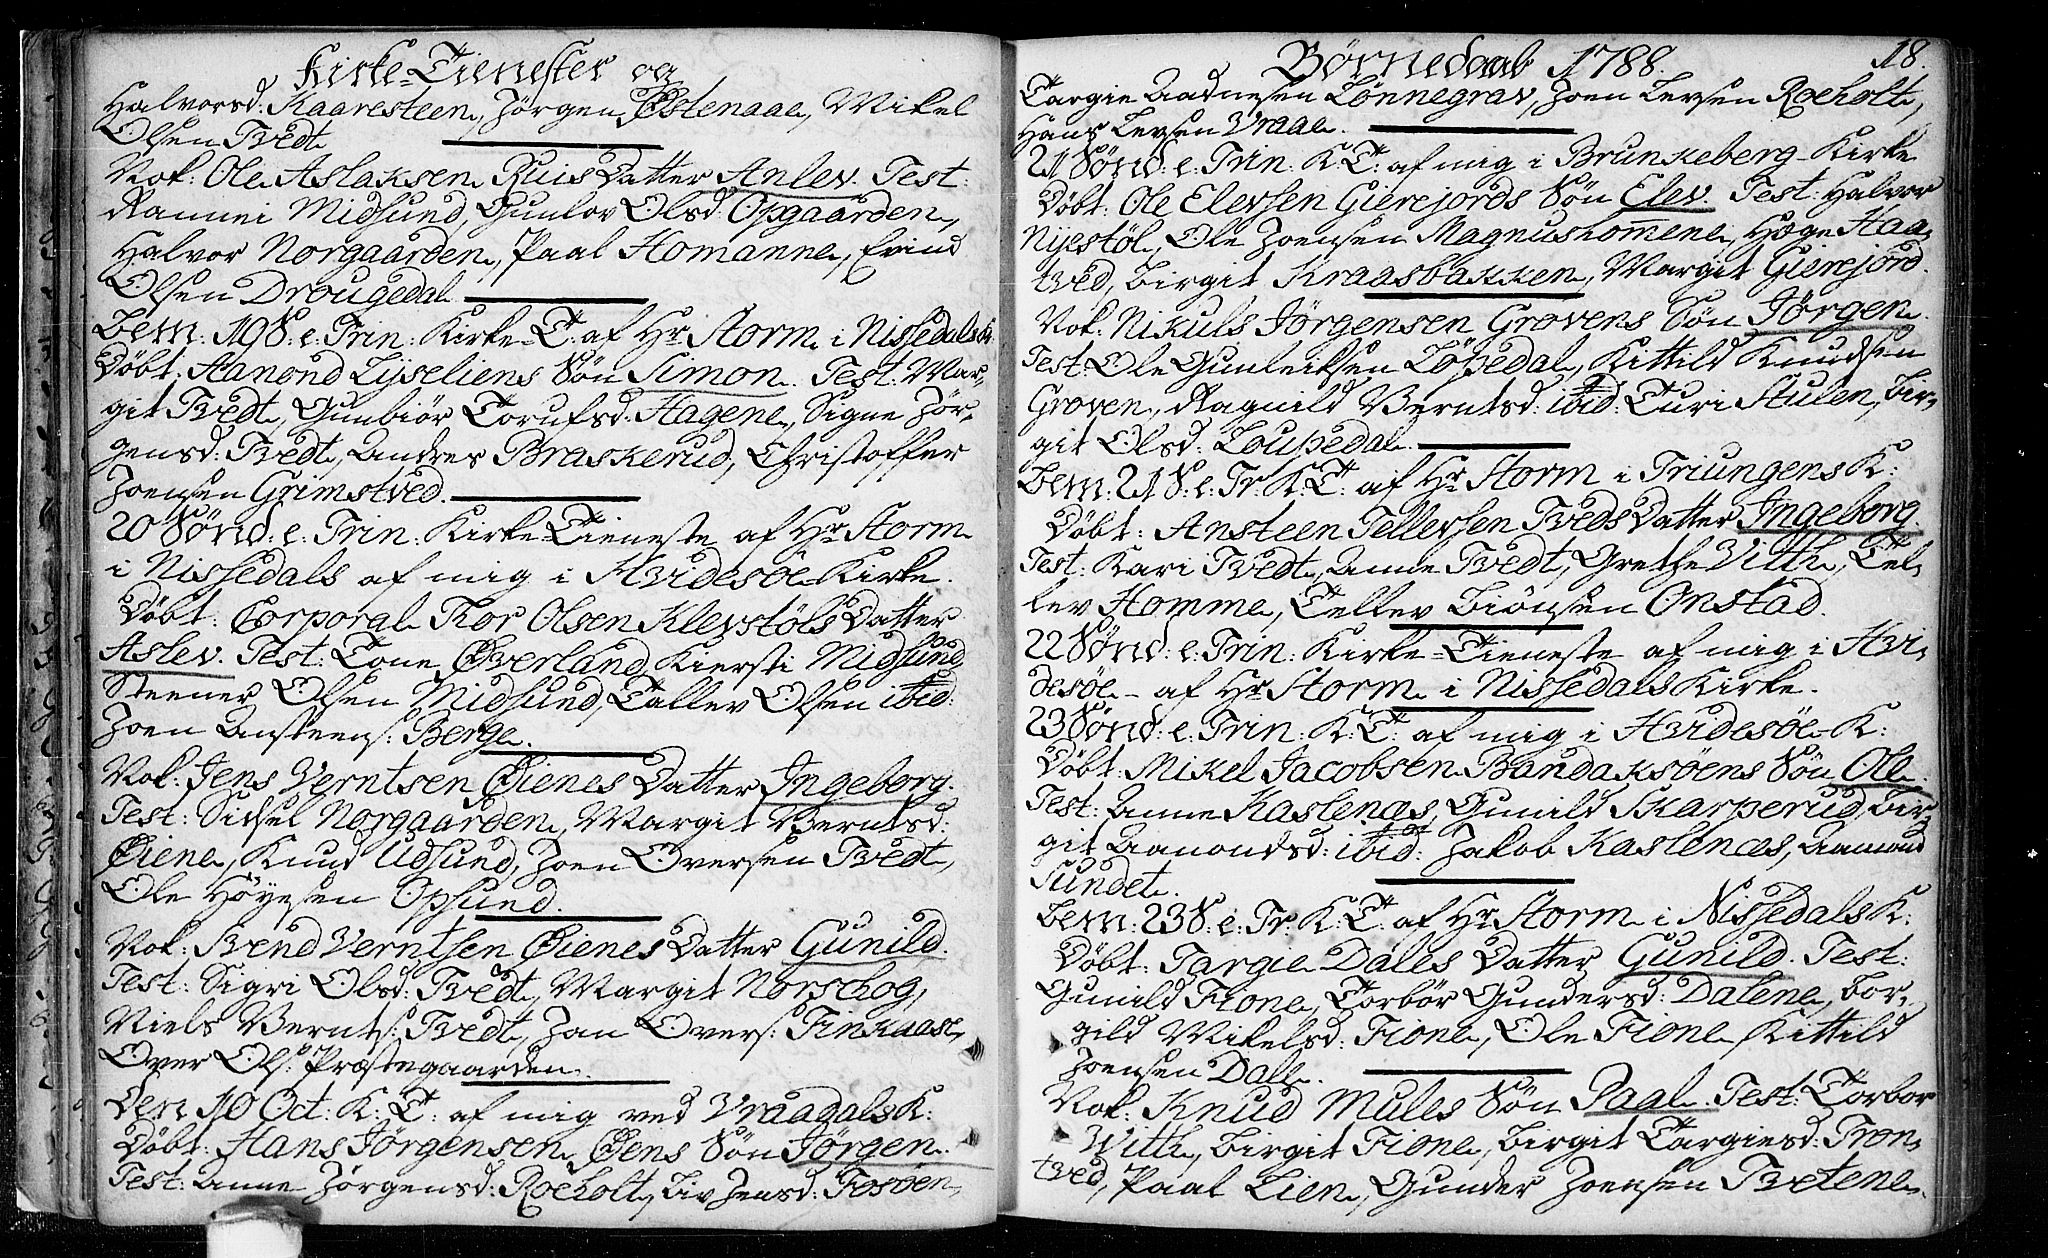 Kirke-Tienester og
Halvorsd: Kaaresteen, Jörgen Østenaae, Mikel
Olsen Tvedt
Nok: Ole Aslaksen Ruis Datter Anlev. Test:
Rannei Midsund, Gunlov Olsd: Opgaarden,
Halvor Norgaarden, Paal Homanne, Evind
Olsen Drougedal
Bem: 19 S: e: Trin: Kirke-T: af Hr Storm i Nissedals K:
Döbt: Aamond Lijseliens Sön Simon. Test: Mar-
git Tvedt, Gunbiör Torufsd: Hagene, Signe Jör-
gensd: Tvedt, Andres Braskerud, Christoffer
Joensen Grimstved.
20 Sönd: e: Trin: Kirke-Tieneste af Hr Storm
i Nissedals af mig i Hvidesöe Kirke.
Döbt: Corporal Thor Olsen Klevstöls Datter
Aslev. Test: Tone Øverland, Kiersti Midsund,
Steener Olsen Midsund, Tallev Olsen ibid:
Joen Ansteens: Berge.
Nok: Jens Verntsen Øienes Datter Ingeborg.
Test: Sidsel Norgaarden, Margit Berntsd:
Øiene, Knud Udsund, Joen Oversen Tvedt,
Ole Höyesen Opsund.
Nok: Svend Verntsen Øienes Datter Gunild.
Test: Sigri Olsd: Tvedt, Margit Norschog,
Niels Bernts: Tvedt, Jan Overs: Finkaase,
Over Ols: Præstegaarden.
Den 10 Oct: K: T: af mig ved Vraadals K:
Döbt: Hans Jörgensen Øens Sön Jörgen.
Test: Anne Jörgensd: Roeholt, Liv Jensd: Fosöen,
Börnedaab 1788. 18.
Targie Aadnesen Lönnegrav, Joen Levsen Roeholt,
Hans Levsen Vraae.
21 Sönd: e: Trin: K: T: af mig i Brunkeberg-Kirke
Döbt: Ole Elevsen Gierejords Sön Elev. Test: Halvor
Nijestöl, Ole Joensen Magnushom̅ene, Høge Haa-
tved, Birgit Kraasbakken, Margit Gierejord.
Nok: Nikuls Jörgensen Grovens Sön Jörgen.
Test: Ole Gunleiksen Löpedal, Kittild Knudsen
Groven, Ragnild Berntsd: ibid: Turi Stulen, Bir-
git Olsd: Loupedal.
Bem: 21 S: e: Tr: K: T: af Hr Storm i Triungens K:
Döbt: Ansteen Tellevsen Tveds Datter Ingeborg.
Test: Kari Tvedt, Anne Tvedt, Grethe Vith, Tel-
lev Homme, Tellev Biönsen Onstad.
22 Sönd: e: Trin: Kirke-Tieneste af mig i Hvi-
desöe - af Hr Storm i Nissedals Kirke.
23 Sönd: e: Trin: K: T: af mig i Hvidesöe-K:
Döbt: Mikel Jacobsen Bandaksöens Sön Ole.
Test: Anne Kaslenæs, Gunild Skarperud, Bir-
git Aamondsd: ibid: Jakob Kaslenæs, Aamond
Sundet.
Bem: 23 S: e: Tr: K: T: af Hr Storm i Nissedals K:
Döbt: Targie Dales Datter Gunild. Test:
Gunild Fione, Torbör Gundersd: Dalene, Bor-
gild Mikelsd: Fione, Ole Fione, Kittild
Joensen Dale.
Nok: Knud Mules Sön Paal. Test: Torbor
Vith, Birgit Fione, Birgit Targiesd: Tron-
tved, Paal Lien, Gunder Joensen Tvetene.